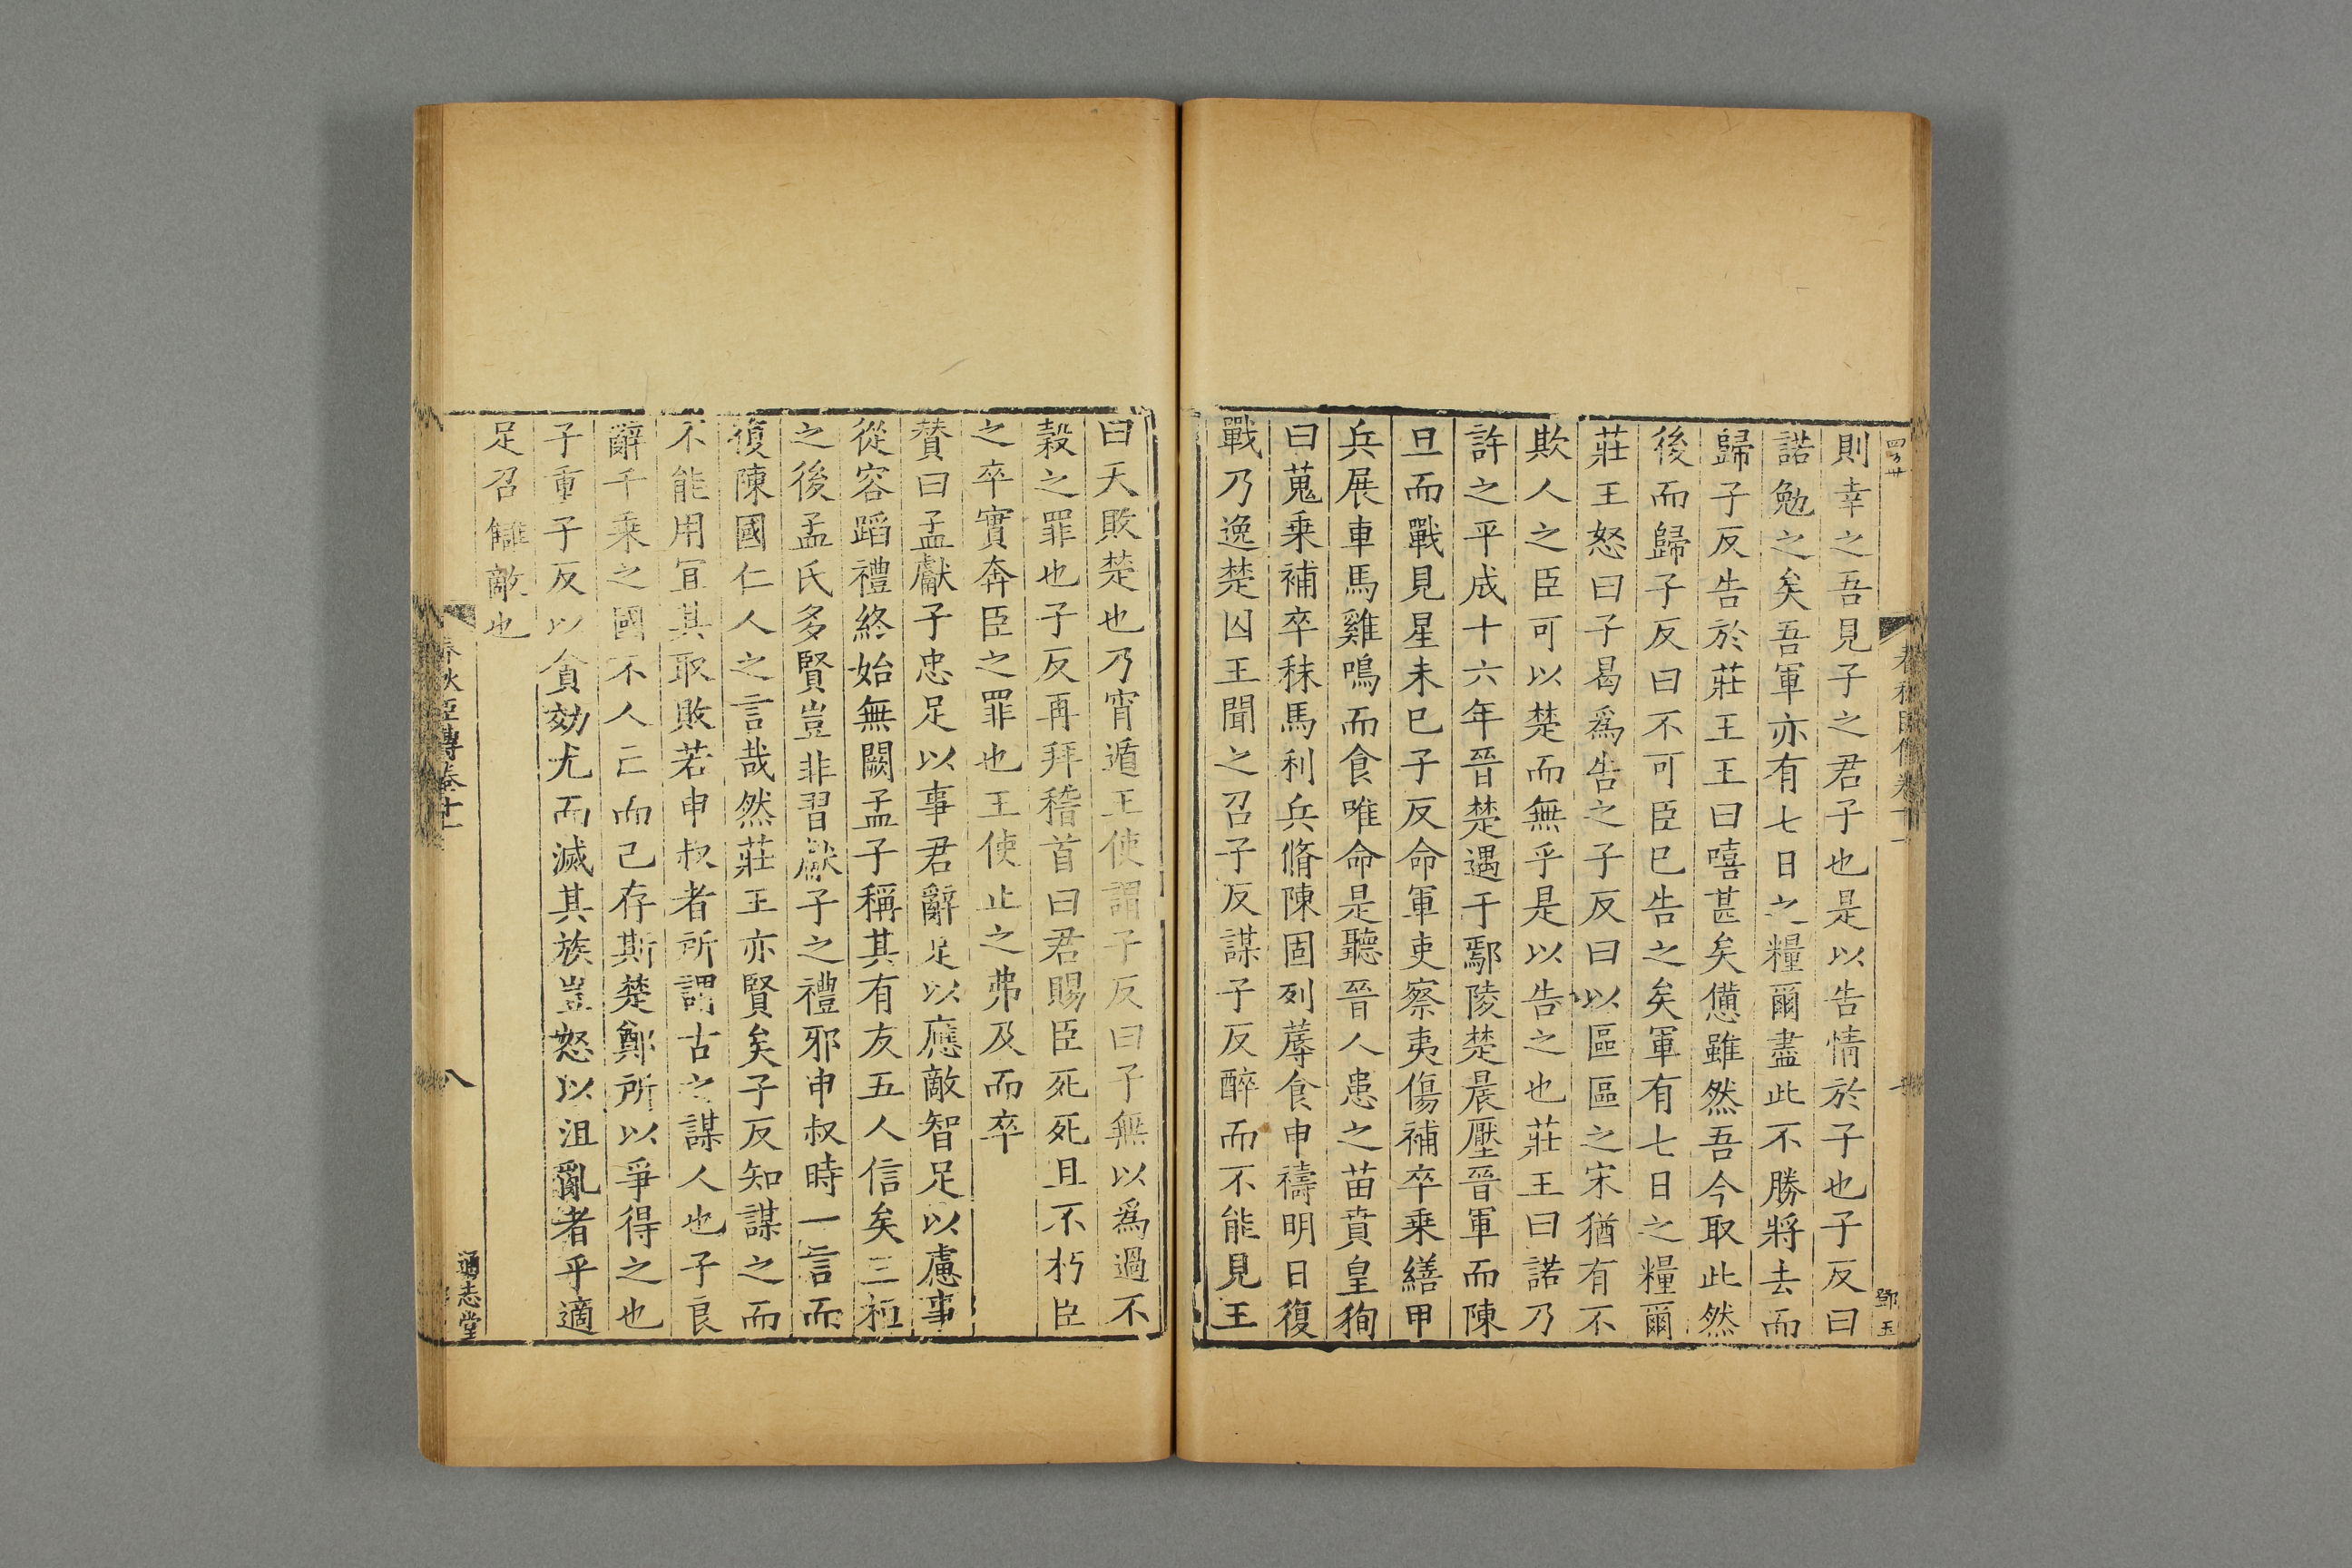 則幸之吾見子之君子也是以告情於子也子反曰
諾勉之矣吾軍亦有七日之糧爾盡此不勝將去而
歸子反告於莊王王曰嘻甚矣憊雖然吾今取此然
後而歸子反曰不可臣已告之矣軍有七日之糧爾
莊王怒曰子曷爲告之子反曰以區區之宋猶有不
欺人之臣可以楚而無乎是以告之也莊王曰諾乃
許之平成十六年晉楚遇于鄢陵楚晨壓晉軍而陳
旦而戰見星未已子反命軍吏察夷傷補卒乘繕甲
兵展車馬雞鳴而食唯命是聽晉人患之苗賁皇狥
曰蒐乘補卒秣馬利兵脩陳固列蓐食申禱明日復
戰乃逸楚囚王聞之召子反謀子反醉而不能見王
曰天敗楚也乃宵遁王使謂子反曰子無以爲過不
穀之罪也子反再拜稽首曰君賜臣死死且不朽臣
之卒實奔臣之罪也王使止之弗及而卒
贊曰孟獻子忠足以事君辭足以應敵智足以慮事
從容蹈禮終始無闕孟子稱其有友五人信矣三桓
之後孟氏多賢豈非習獻子之禮邪申叔時一言而
復陳國仁人之言哉然莊王亦賢矣子反知謀之而
不能用宜其取敗若申叔者所謂古之謀人也子良
辭千乘之國不人亡而己存斯楚鄭所以爭得之也
子重子反以貪効尤而滅其族豈怒以沮亂者乎適
足召讎敵也
春秋臣傳卷十一
八
通志堂